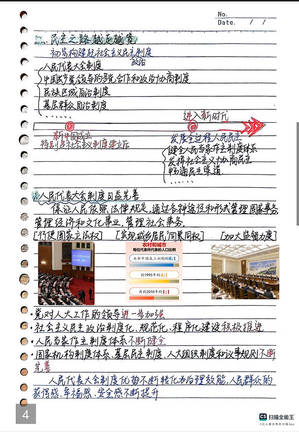 No.
Date. / /
民主之路越走越宽
初步构建社会主义民主制度
政治
人民代表大会制度
中国共产党领导的多党合作和政治协商制度
民族区域自治制度
基层群众自治制度
......
进入新时代
新中国成立
发展全过程人民民主
健全人民当家作主制度体系
发挥社会主义协商民主
畅通民主渠道
......
人民代表大会制度日益完善
保证人民依照法律规定,通过各种途径和形式管理国家事务
管理经济和文化事业,管理社会事务。
[行使国家立法权] [实现城乡居民"同票同权"] [加大监督力度]
农村和城市
每位代表所代表的人口比例
党对人大工作的领导进一步加强
社会主义民主政治制度化、规范化、程序化建设积极推进
人民当家作主制度体系不断健全
国家机构制度体系、基层民主制度、人大组织制度和议事规则不断
完善
人民代表大会制度优势不断转化为治理效能,人民群众的
获得感、幸福感、安全感不断提升
4
扫描全能王